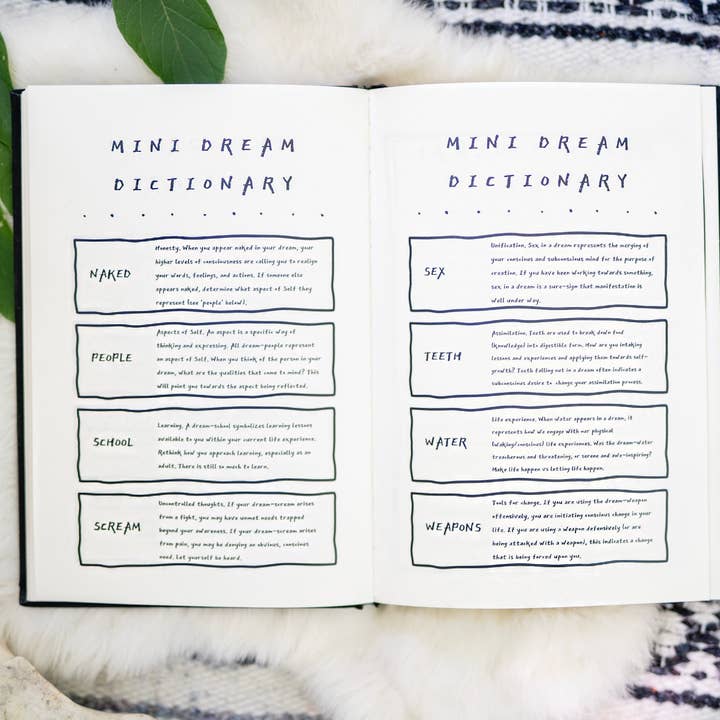 MINI DREAM
DICTIONARY
NAKED
Honesty. When you appear naked in your dream, your
higher levels of consciousness are calling you to realign
your words, feelings, and actions. If someone else
appears naked, determine what aspect of Self they
represent (see 'people' below).
PEOPLE
Aspects of Self. An aspect is a specific way of
thinking and expressing. All dream-people represent
an aspect of Self. When you think of the person in your
dream, what are the qualities that come to mind? This
will point you towards the aspect being reflected.
SCHOOL
Learning. A dream-school symbolizes learning lessons
available to you within your current life experience.
Rethink how you approach learning, especially as an
adult. There is still so much to learn.
SCREAM
Uncontrolled thoughts. If your dream-scream arises
from a fight, you may have unmet needs trapped
beyond your awareness. If your dream-scream arises
from pain, you may be denying an obvious, conscious
need. Let yourself be heard.
MINI DREAM
DICTIONARY
SEX
Unification. Sex in a dream represents the merging of
your conscious and subconscious mind for the purpose of
creation. If you have been working towards something,
sex in a dream is a sure-sign that manifestation is
well under way.
TEETH
Assimilation. Teeth are used to break down food
(knowledge) into digestible form. How are you intaking
lessons and experiences and applying them towards self-
growth? Teeth falling out in a dream often indicates a
subconscious desire to change your assimilation process.
WATER
Life experience. When water appears in a dream, it
represents how we engage with our physical
(waking/conscious) life experiences. Was the dream-water
treacherous and threatening, or serene and awe-inspiring?
Make life happen vs letting life happen.
WEAPONS
Tools for change. If you are using the dream-weapon
offensively, you are initiating conscious change in your
life. If you are using a weapon defensively (or are
being attacked with a weapon), this indicates a change
that is being forced upon you.